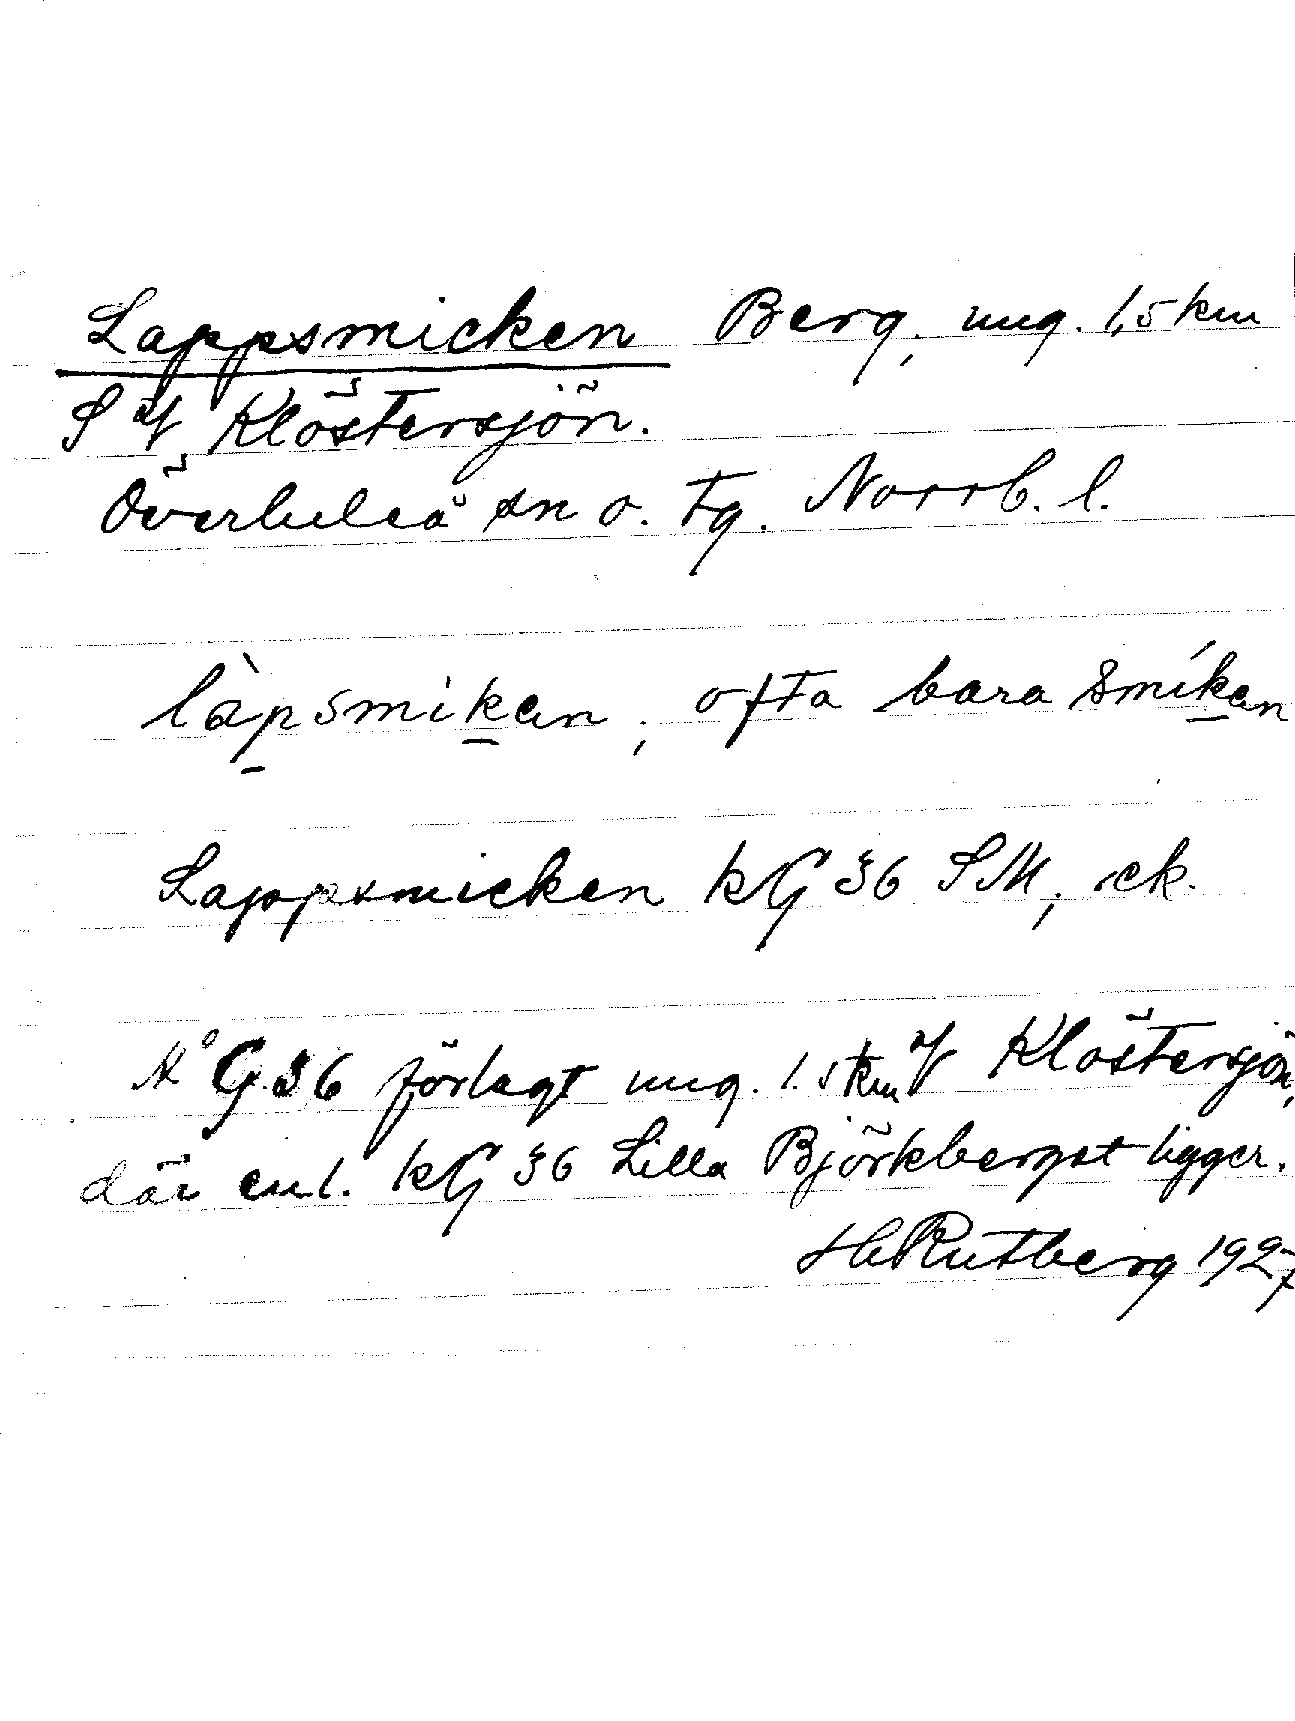 Lappsmicken Berg, ung. 1,5 km
S af Klöstersjön.
Överluleå sn o. tg. Norrb. l.
làpsmìkən, ofta bara smíkən
Lappsmicken kG 36 SM, ek.
Å G 36 förlagt ung. 1.5 km af Klöstersjön,
där enl. kG 36 Lilla Björkberget ligger.
H Rutberg 1927